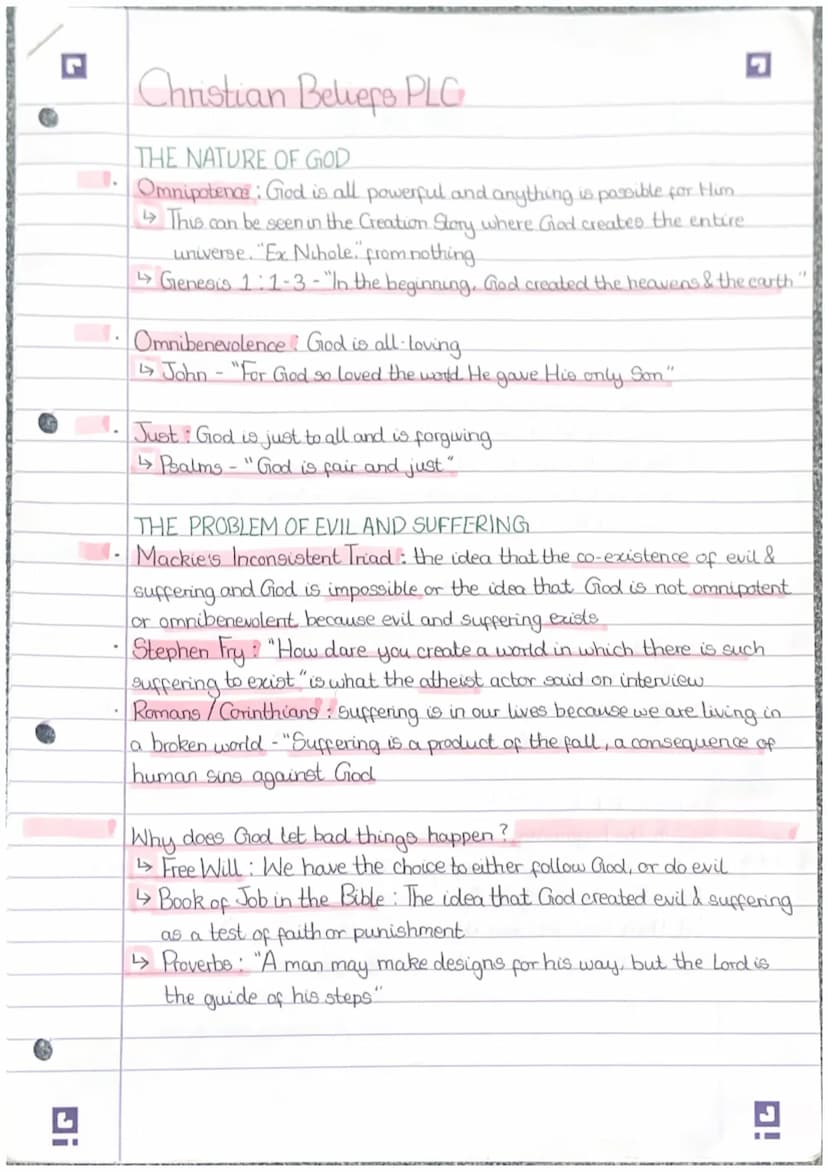 Christian Beliefs PLC
THE NATURE OF GOD
• Omnipotence : God is all powerful and anything is possible for Him
↳ This can be seen in the Creation Story where God creates the entire
universe. "Ex Nihole." from nothing
↳ Genesis 1:1-3 - "In the beginning, God created the heavens & the earth"
• Omnibenevolence : God is all-loving
↳ John - "For God so loved the world He gave His only Son"
• Just : God is just to all and is forgiving
↳ Psalms - "God is fair and just"
THE PROBLEM OF EVIL AND SUFFERING
• Mackie's Inconsistent Triad : the idea that the co-existence of evil &
suffering and God is impossible or the idea that God is not omnipotent
or omnibenevolent because evil and suffering exists
• Stephen Fry : "How dare you create a world in which there is such
suffering to exist" is what the atheist actor said on interview
• Romans / Corinthians : suffering is in our lives because we are living in
a broken world - "Suffering is a product of the fall, a consequence of
human sins against God
Why does God let bad things happen?
↳ Free Will : We have the choice to either follow God, or do evil
↳ Book of Job in the Bible : The idea that God created evil & suffering
as a test of faith or punishment
↳ Proverbs : "A man may make designs for his way, but the Lord is
the guide of his steps"